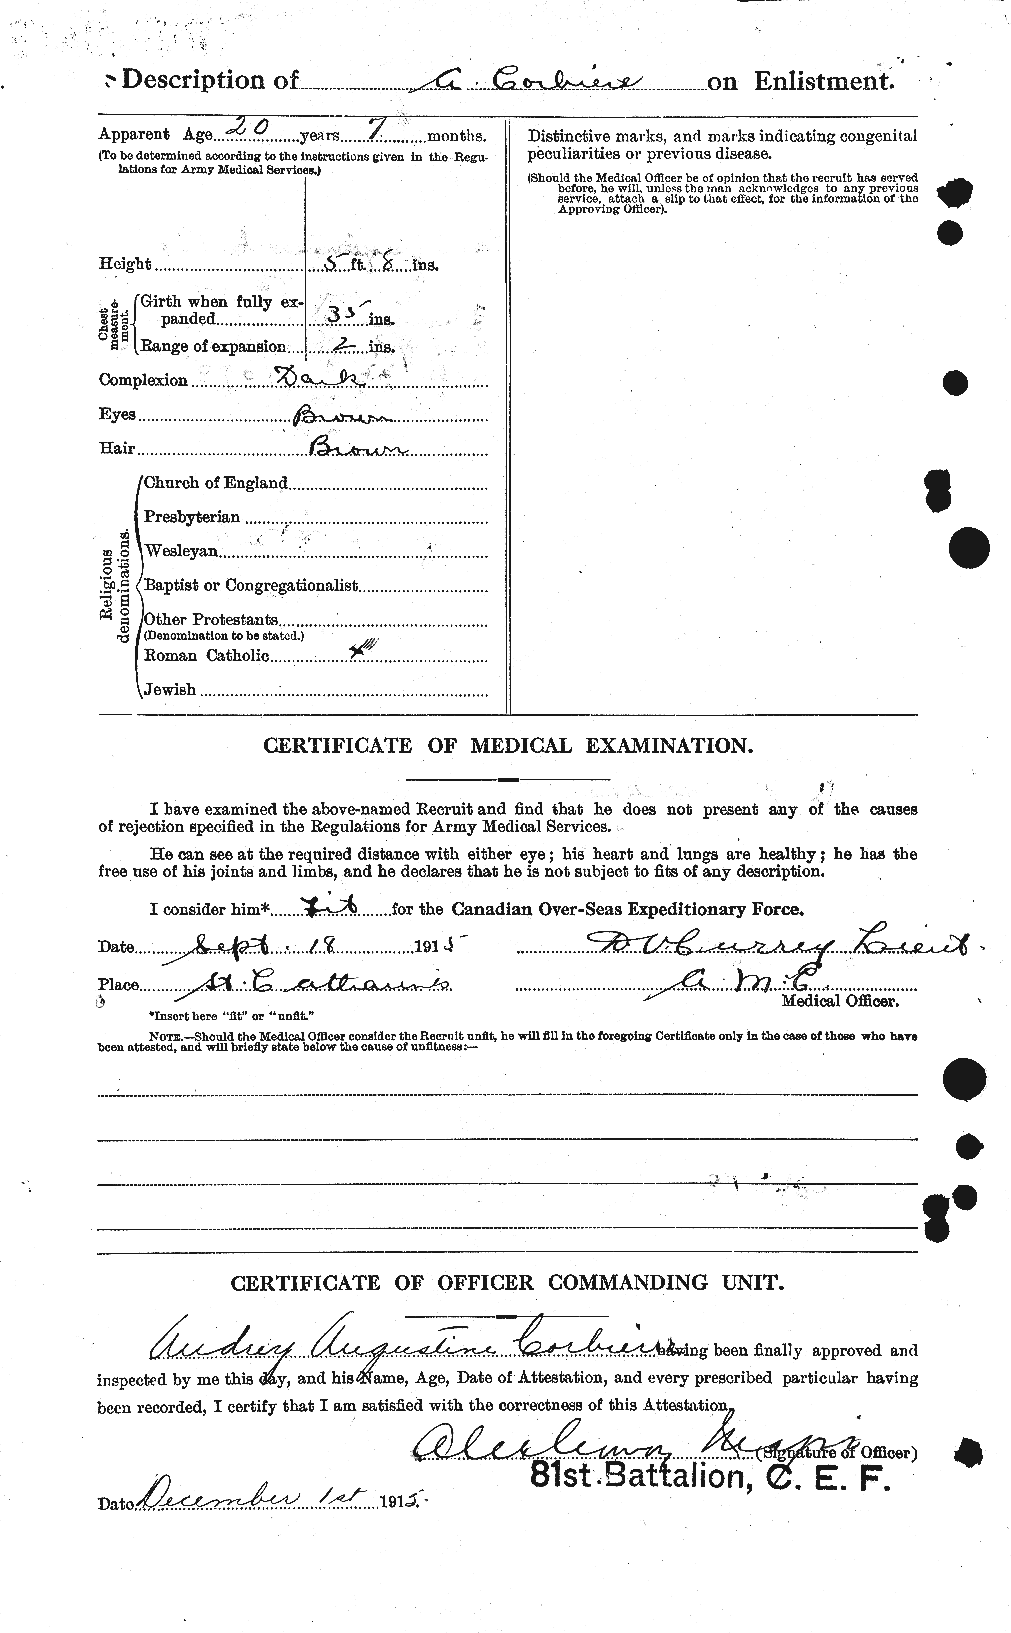 Description of A. Corbiere on Enlistment.
Apparent Age 20 years 7 months.
(To be determined according to the instructions given in the Regu-
lations for Army Medical Services.)
Height 5 ft. 8 ins.
Chest measure-ment.
Girth when fully ex-
panded 35 ins.
Range of expansion 2 ins.
Complexion Dark
Eyes Brown
Hair Brown
Religious denominations.
Church of England
Presbyterian
Wesleyan
Baptist or Congregationalist
Other Protestants
(Denomination to be stated.)
Roman Catholic x
Jewish
Distinctive marks, and marks indicating congenital
peculiarities or previous disease.
(Should the Medical Officer be of opinion that the recruit has served
before, he will, unless the man acknowledges to any previous
service, attach a slip to that effect, for the information of the
Approving Officer).
CERTIFICATE OF MEDICAL EXAMINATION.
I have examined the above-named Recruit and find that he does not present any of the causes
of rejection specified in the Regulations for Army Medical Services.
He can see at the required distance with either eye; his heart and lungs are healthy; he has the
free use of his joints and limbs, and he declares that he is not subject to fits of any description.
I consider him* Fit for the Canadian Over-Seas Expeditionary Force.
Date Sept. 18 1915 D V Currey Lieut.
Place St. Catharines A. M. C.
Medical Officer.
*Insert here "fit" or "unfit."
NOTE.—Should the Medical Officer consider the Recruit unfit, he will fill in the foregoing Certificate only in the case of those who have
been attested, and will briefly state below the cause of unfitness:—
CERTIFICATE OF OFFICER COMMANDING UNIT.
Audrey Augustine Corbiere having been finally approved and
inspected by me this day, and his Name, Age, Date of Attestation, and every prescribed particular having
been recorded, I certify that I am satisfied with the correctness of this Attestation.
(Signature of Officer)
81st. Battalion, C. E. F.
Date December 1st 1915.